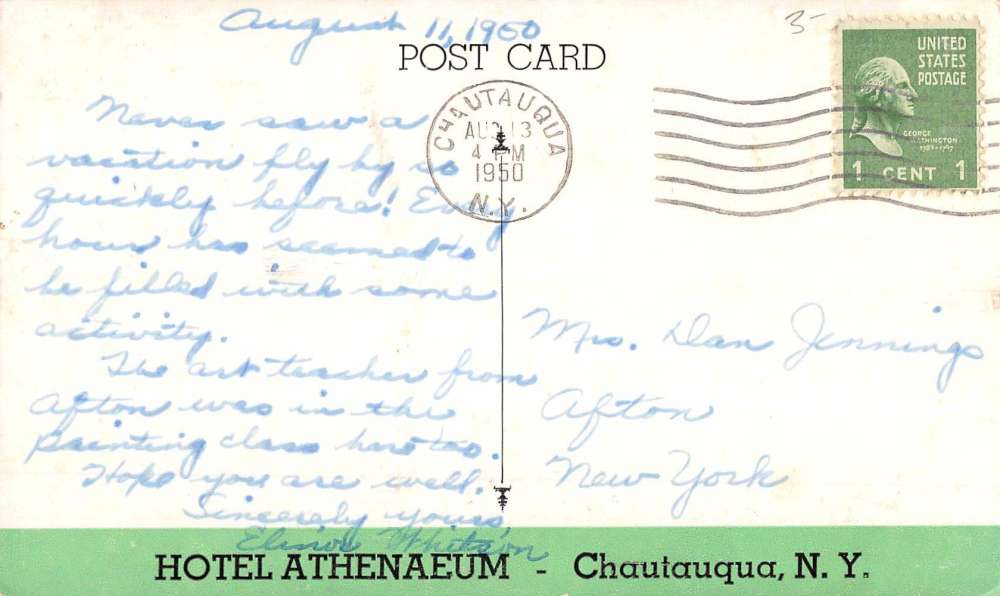 August 11, 1950
3-
POST CARD
UNITED
STATES
POSTAGE
GEORGE
WASHINGTON
1789-1797
1 CENT 1
CHAUTAUQUA
AUG 13
4 PM
1950
N.Y.
Never saw a
vacation fly by so
quickly before! Every
hour has seemed to
be filled with some
activity.
The art teacher from
Afton was in the
painting class here too.
Hope you are well.
Sincerely yours,
Elinor
Mrs. Dan Jennings
Afton
New York
HOTEL ATHENAEUM - Chautauqua, N. Y.